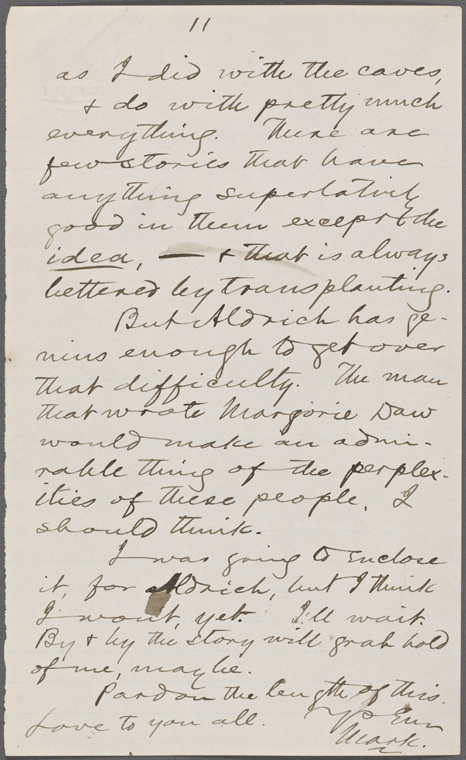 11
as I did with the caves,
& do with pretty much
everything. There are
few stories that have
anything superlatively
good in them except the
idea, — & that is always
bettered by transplanting.
But Aldrich has ge-
nius enough to get over
that difficulty. The man
that wrote Marjorie Daw
would make an admi-
rable thing of the perplex-
ities of these people, I
should think.
I was going to enclose
it, for Aldrich, but I think
I wont, yet. I'll wait.
By & by the story will grab hold
of me, maybe.
Pardon the length of this.
Love to you all.
Yrs Ever
Mark.